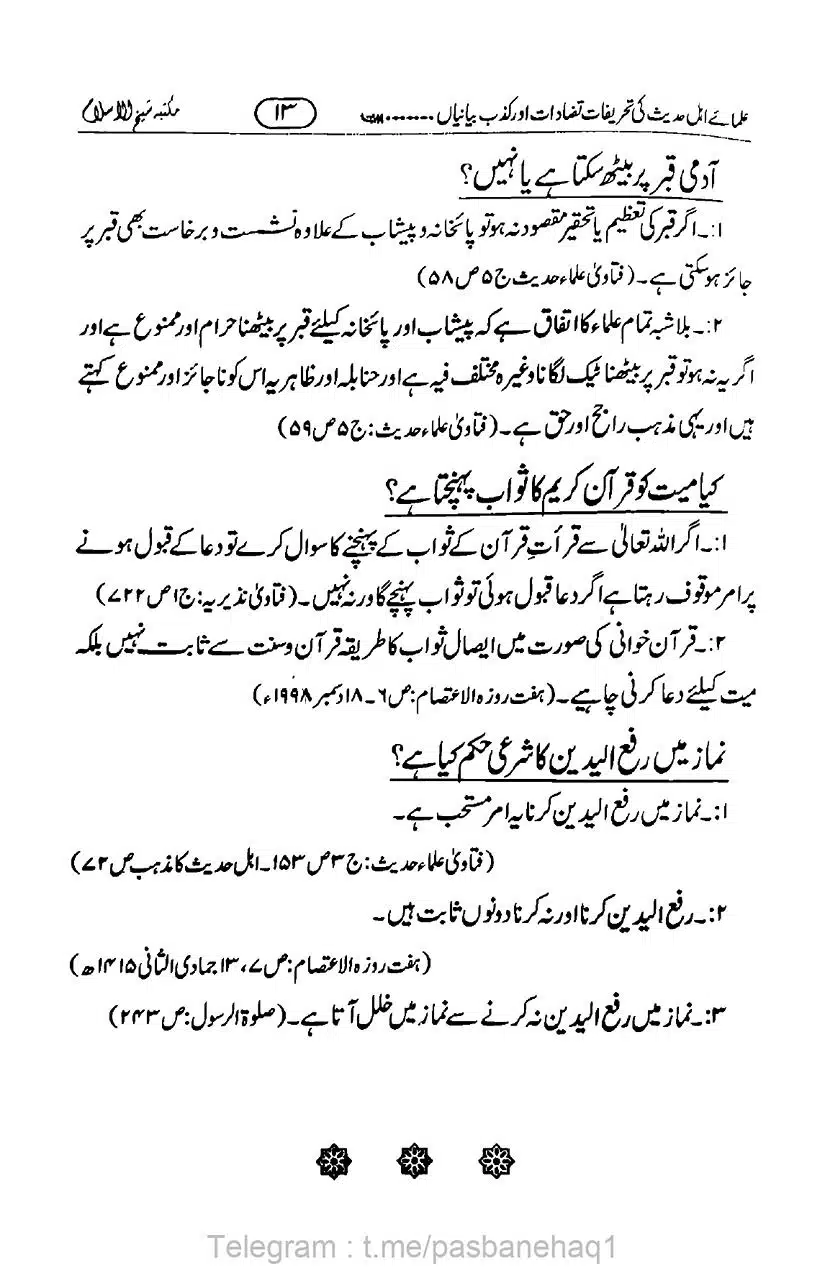 علمائے اہل حدیث کی تحریفات تضادات اور کذب بیانیاں ........ ۱۳ مکتبہ شیخ الاسلام
آدمی قبر پر بیٹھ سکتا ہے یا نہیں؟
۱:۔ اگر قبر کی تعظیم یا تحقیر مقصود نہ ہو تو پائخانہ و پیشاب کے علاوہ نشست و برخاست بھی قبر پر
جائز ہوسکتی ہے۔ (فتاویٰ علماء حدیث ج۵ ص۵۸)
۲:۔ بلا شبہ تمام علماء کا اتفاق ہے کہ پیشاب اور پائخانہ کیلئے قبر پر بیٹھنا حرام اور ممنوع ہے اور
اگر یہ نہ ہو تو قبر پر بیٹھنا ٹیک لگانا وغیرہ مختلف فیہ ہے اور حنابلہ اور ظاہریہ اس کو ناجائز اور ممنوع کہتے
ہیں اور یہی مذہب راجح اور حق ہے۔ (فتاویٰ علماء حدیث: ج۵ ص۵۹)
کیا میت کو قرآن کریم کا ثواب پہنچتا ہے؟
۱:۔ اگر اللہ تعالیٰ سے قرأتِ قرآن کے ثواب کے پہنچنے کا سوال کرے تو دعا کے قبول ہونے
پر امر موقوف رہتا ہے اگر دعا قبول ہوئی تو ثواب پہنچے گا ورنہ نہیں۔ (فتاویٰ نذیریہ: ج۱ ص۷۲۲)
۲:۔ قرآن خوانی کی صورت میں ایصال ثواب کا طریقہ قرآن و سنت سے ثابت نہیں بلکہ
میت کیلئے دعا کرنی چاہیے۔ (ہفت روزہ الاعتصام: ص۶۔ ۱۸ دسمبر ۱۹۹۸ء)
نماز میں رفع الیدین کا شرعی حکم کیا ہے؟
۱:۔ نماز میں رفع الیدین کرنا یہ امر مستحب ہے۔
(فتاویٰ علماء حدیث: ج۳ ص۱۵۳۔ اہل حدیث کا مذہب ص۷۲)
۲:۔ رفع الیدین کرنا اور نہ کرنا دونوں ثابت ہیں۔
(ہفت روزہ الاعتصام: ص۷، ۱۳ جمادی الثانی ۱۴۱۵ھ)
۳:۔ نماز میں رفع الیدین نہ کرنے سے نماز میں خلل آتا ہے۔ (صلوٰۃ الرسول: ص۲۴۳)
Telegram : t.me/pasbanehaq1